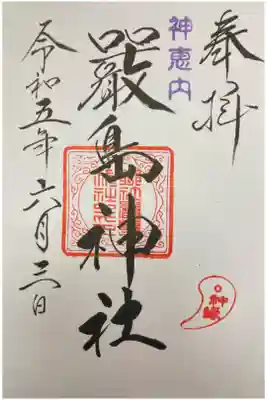 奉拝
神恵内
嚴島神社
令和五年六月三日